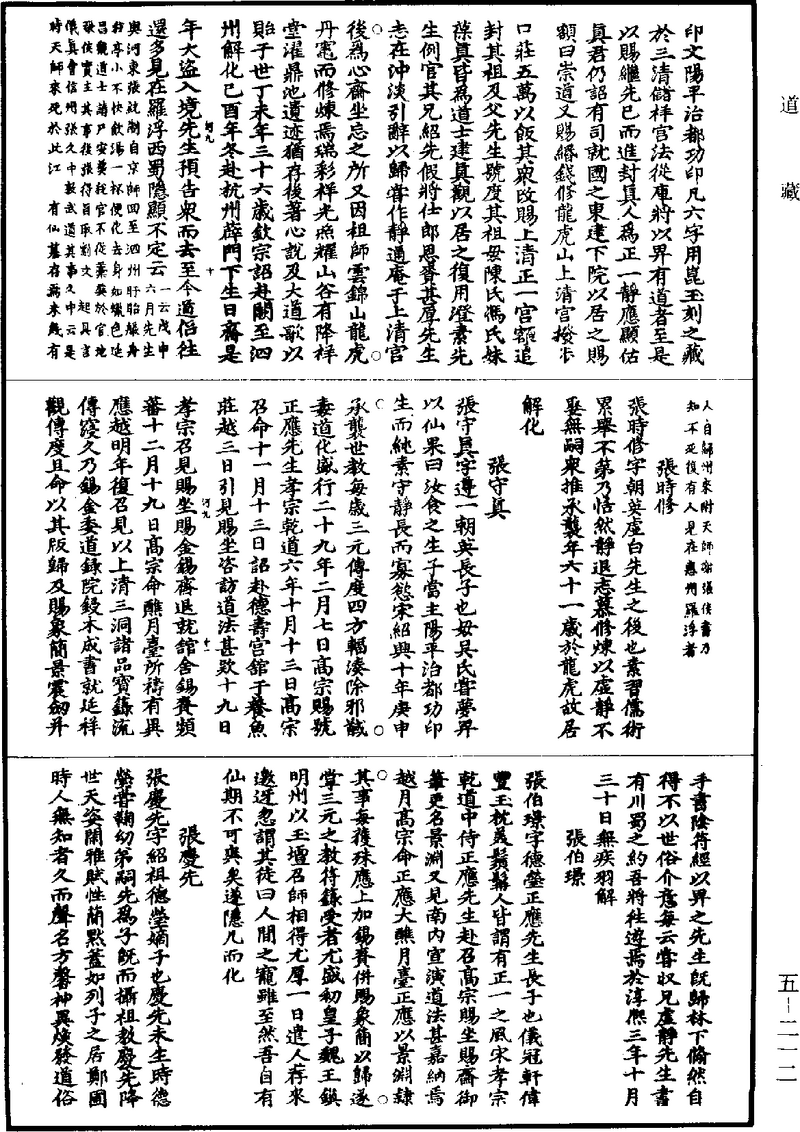 道藏
印文陽平治都功印凡六字用崑玉刻之藏
於三清儲祥宮法從庫將以畀有道者至是
以賜繼先已而進封真人為正一靜應顯佑
真君仍詔有司就國之東建下院以居之賜
額曰崇道又賜緡錢修龍虎山上清宮撥步
口莊五萬以飯其衆改賜上清正一宮額追
封其祖及父先生號度其祖母陳氏馮氏妹
葆真皆為道士建真觀以居之復用澄素先
生例官其兄紹先假將仕郎恩賚甚厚先生
志在沖淡引辭以歸嘗作靜通庵于上清宮
後為心齋坐忘之所又因祖師雲錦山龍虎
丹竈而修煉焉瑞彩祥光照耀山谷有降祥
堂濯鼎池遺迹猶存後著心說及大道歌以
貽于世丁未年三十六歲欽宗詔赴闕至泗
州解化己酉年冬赴杭州薛門下生日齋是
年大盜入境先生預告衆而去至今道侶往
還多見在羅浮西蜀隱顯不定云一云戊申六月先生
與河東張說制自京師四至泗州盱眙縣舟
於亭小不快飲湯一杯便化去身如蠟色
時天師來死於此江 有仙墓存焉未幾有
人自解州來附天師謝張侯書乃
知不死復有人見在惠州羅浮者
張時修
張時修字朝英虛白先生之後也素習儒術
累舉不第乃恬然靜退志慕修煉以虛靜不
娶無嗣衆推承襲年六十一歲於龍虎故居
解化
張守真
張守真字遵一朝英長子也母吳氏嘗夢昇
以仙果曰汝食之生子當主陽平治都功印
生而純素守靜長而寡慾宋紹興十年庚申
承襲世教每歲三元傳度四方輻湊除邪馘
毒道化盛行二十九年二月七日高宗賜號
正應先生孝宗乾道六年十月十三日高宗
召命十一月十三日詔赴德壽宮舘于養魚
莊越三日引見賜坐咨訪道法甚欵十九日
孝宗召見賜坐賜金錫齋退就舘舍錫賚頻
蕃十二月十九日高宗命醮月臺所禱有異
應越明年復召見以上清三洞諸品寶籙流
傳寖久乃錫金委道錄院鋟木成書就延祥
觀傳度且命以其版歸及賜象簡景震劒并
手書陰符經以畀之先生旣歸林下翛然自
得不以世俗介意每云嘗収兄虛靜先生書
有川蜀之約吾將往遊焉於淳熙三年十月
三十日無疾羽解
張伯璟
張伯璟字德瑩正應先生長子也儀冠軒偉
豐玉枕美鬚髯人皆謂有正一之風宋孝宗
乾道中侍正應先生赴召高宗賜坐賜齋御
筆更名景淵又見南內宣演道法甚嘉納焉
越月高宗命正應大醮月臺正應以景淵隸
其事每獲殊應上加錫賚併賜象簡以歸遂
掌三元之教符籙受者尤盛初皇子魏王鎮
明州以玉壇召師相得尤厚一日遣人荐來
邀迓忽謂其徒曰人間之寵雖至然吾自有
仙期不可與矣遂隱几而化
張慶先
張慶先字紹祖德瑩嫡子也慶先未生時德
瑩嘗鞠幼弟嗣先為子旣而攝祖教慶先降
世天姿閑雅賦性簡默蓋如列子之居鄭圃
時人無知者久而聲名方馨神異煥發道俗
五-二一二